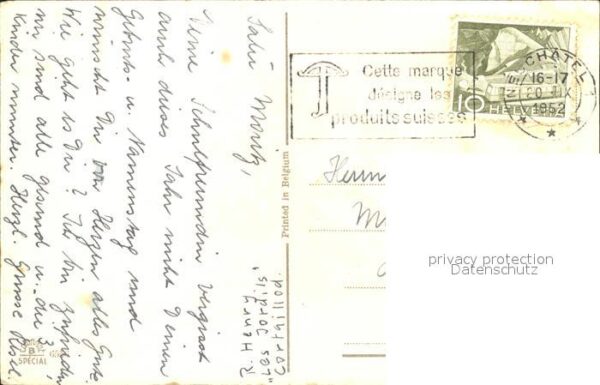 Salü Moritz,
Deine Schulfreundin vergisst
auch dieses Jahr nicht Deinen
Geburts- u. Namenstag und
wünscht Dir von Herzen alles Gute.
Wie geht es Dir? Ich bin zufrieden
wir sind alle gesund u. die 3
Kinder munter. Herzl. Grüsse
R. Haner
"Les Jordils"
Cortaillod.
Printed in Belgium
SPECIAL
Cette marque
désigne les
produits suisses
NEUCHÂTEL 1
16-17
20 IX
1952
10 HELVETIA
Herrn
privacy protection
Datenschutz